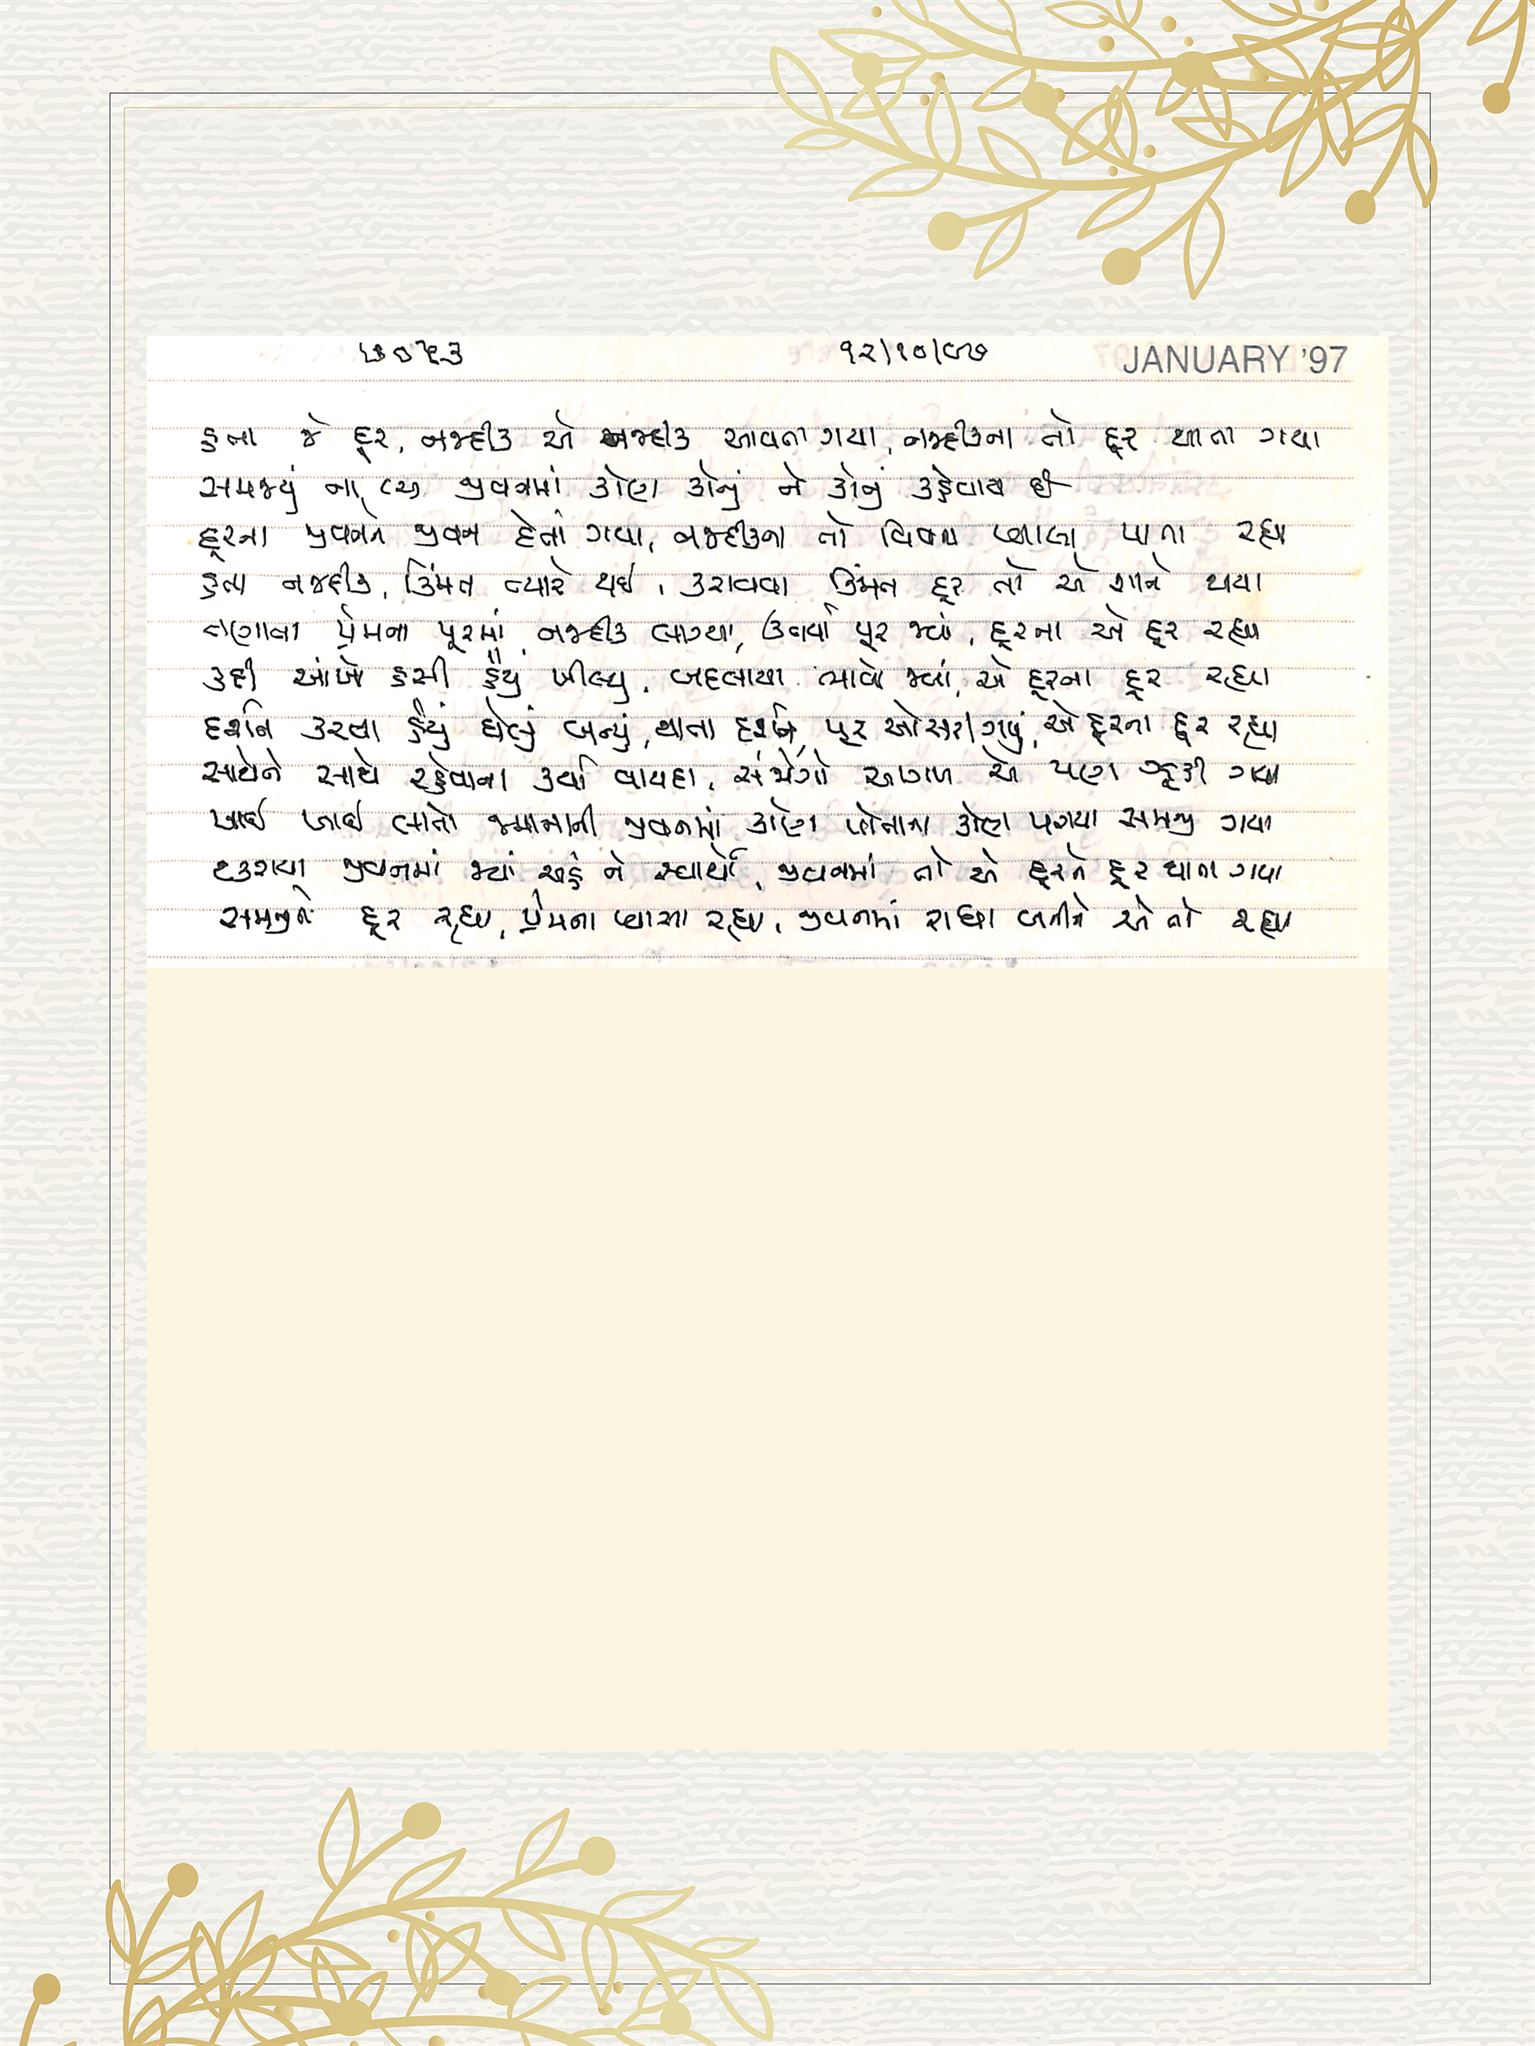 ૭૦૫૩ ૧૨/૧૦/૯૭ JANUARY '97
હતા જે દૂર, નજદીક એ નજદીક આવતા ગયા, નજદીકના તો દૂર થાતા ગયા
સમજાયું ના જીવનમાં કોણ કોનું ને કોનું કહેવાય છે
દૂરના જીવનને જીવન દેતાં ગયા, નજદીકના તો વિષના પ્યાલા પાતા રહ્યા
હતા નજદીક, હિંમત ત્યારે થઈ, કરાવવા હિંમત દૂર તો એ શાને થયા
તણાવા પ્રેમના પૂરમાં નજદીક લાગ્યા, ઉતર્યા પૂર જ્યાં, દૂરના એ દૂર રહ્યા
કદી આંખો હસી હૈયું ખીલ્યું, બદલાયા ભાવો જ્યાં, એ દૂરના દૂર રહ્યા
દર્શન કરવા હૈયું ઘેલું બન્યું, થાતા દર્શન, પૂર ઓસરી ગયું, એ દૂરના દૂર રહ્યા
સાથેને સાથે રહેવાના કર્યા વાયદા, સંજોગો આગળ એ પણ ઝૂકી ગયા
ખાઈ ખાઈ લાતો જમાનાની જીવનમાં કોણ પોતાના કોણ પરાયા સમજી ગયા
ટકરાયા જીવનમાં જ્યાં અહં ને સ્વાર્થો, જીવનમાં તો એ દૂરને દૂર થાતા ગયા
સમજીને દૂર રહ્યા, પ્રેમના પ્યાસા રહ્યા, જીવનમાં રાધા બનીને એ તો રહ્યા